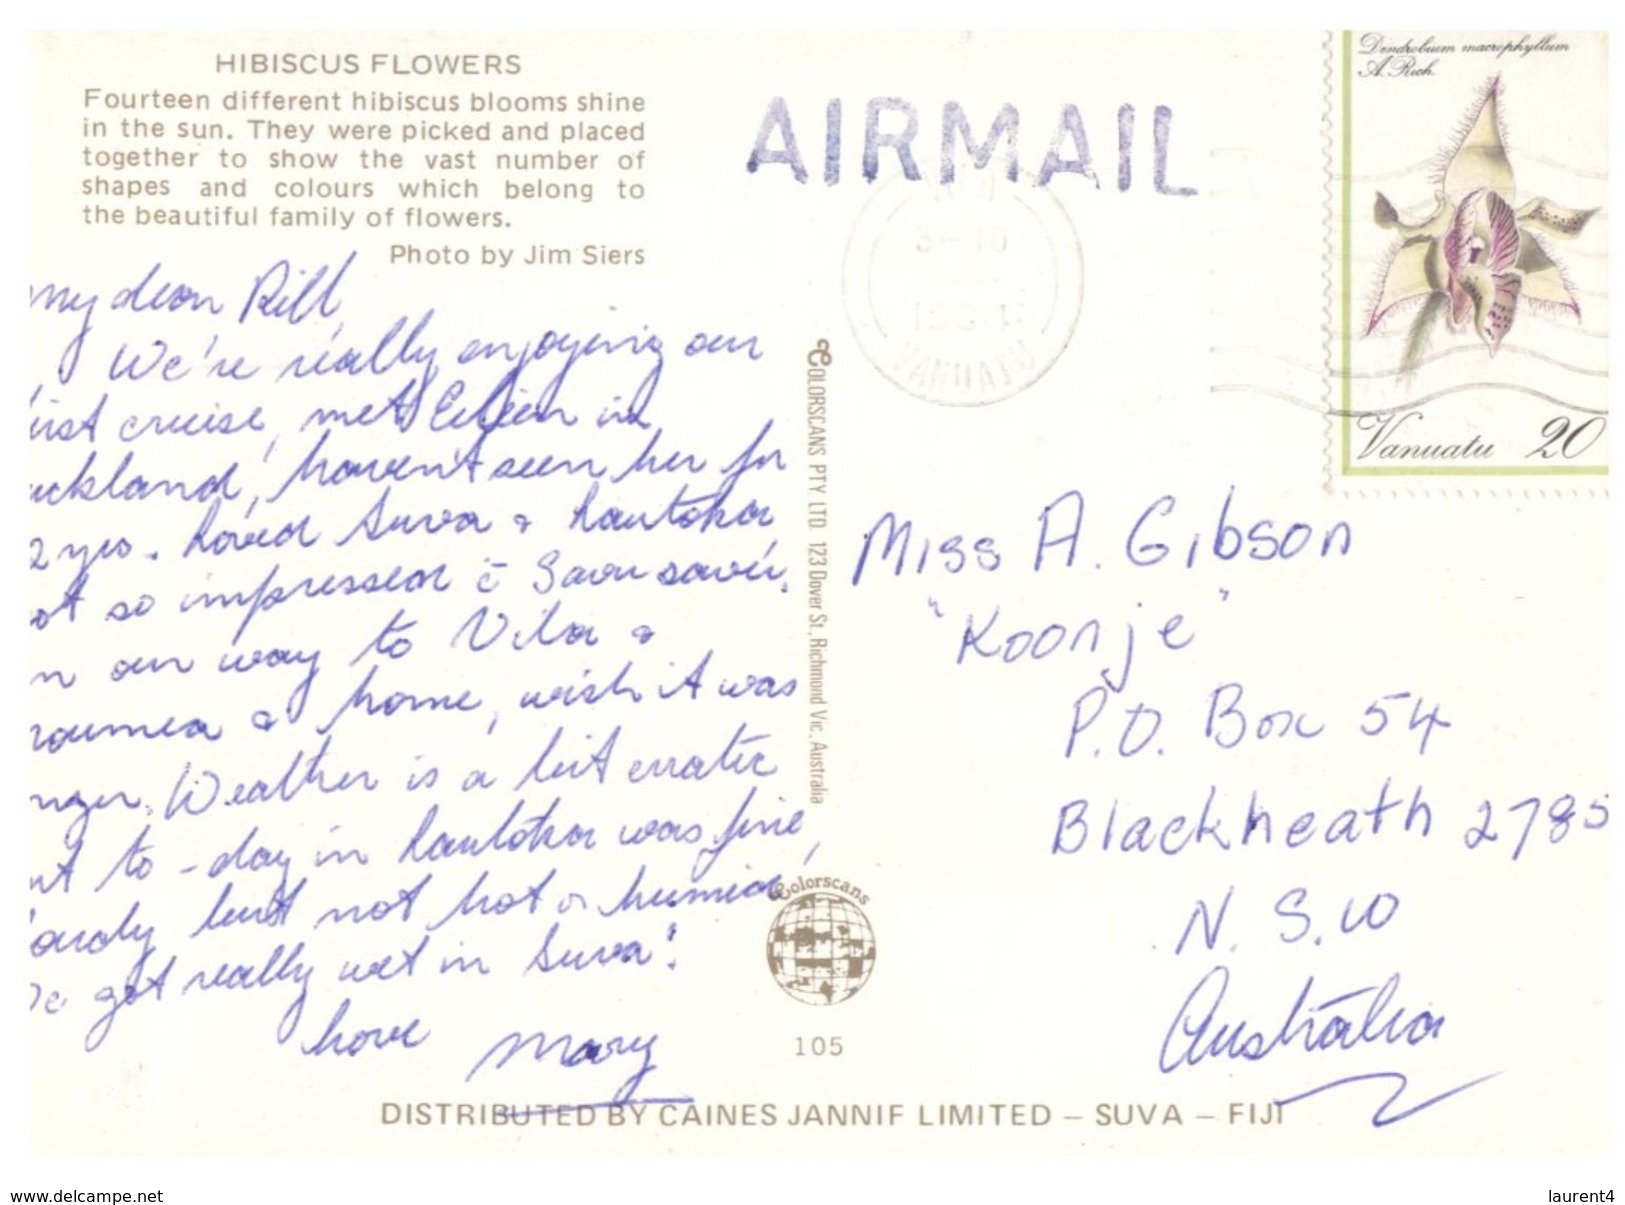 HIBISCUS FLOWERS
Fourteen different hibiscus blooms shine
in the sun. They were picked and placed
together to show the vast number of
shapes and colours which belong to
the beautiful family of flowers.
Photo by Jim Siers
my dear
We're really enjoying our
irst cruise, met Eileen in
uckland, haven't seen her for
2 yrs. Loved Suva & Lautoka
ot so impressed c̄ Savusavu,
n our way to Vila &
noumea & home, wish it was
nger. Weather is a bit erratic
ut to-day in Lautoka was fine,
oudy but not hot or humid
We got really wet in Suva!
Love Mary
COLORSCANS PTY. LTD. 123 Dover St., Richmond Vic. Australia
Colorscans
105
DISTRIBUTED BY CAINES JANNIF LIMITED – SUVA – FIJI
AIRMAIL
3-10
VANUATU
Dendrobium macrophyllum
A. Rich.
Vanuatu 20
Miss A. Gibson
"Koonje"
P.O. Box 54
Blackheath 2785
N.S.W
Australia
www.delcampe.net
laurent4